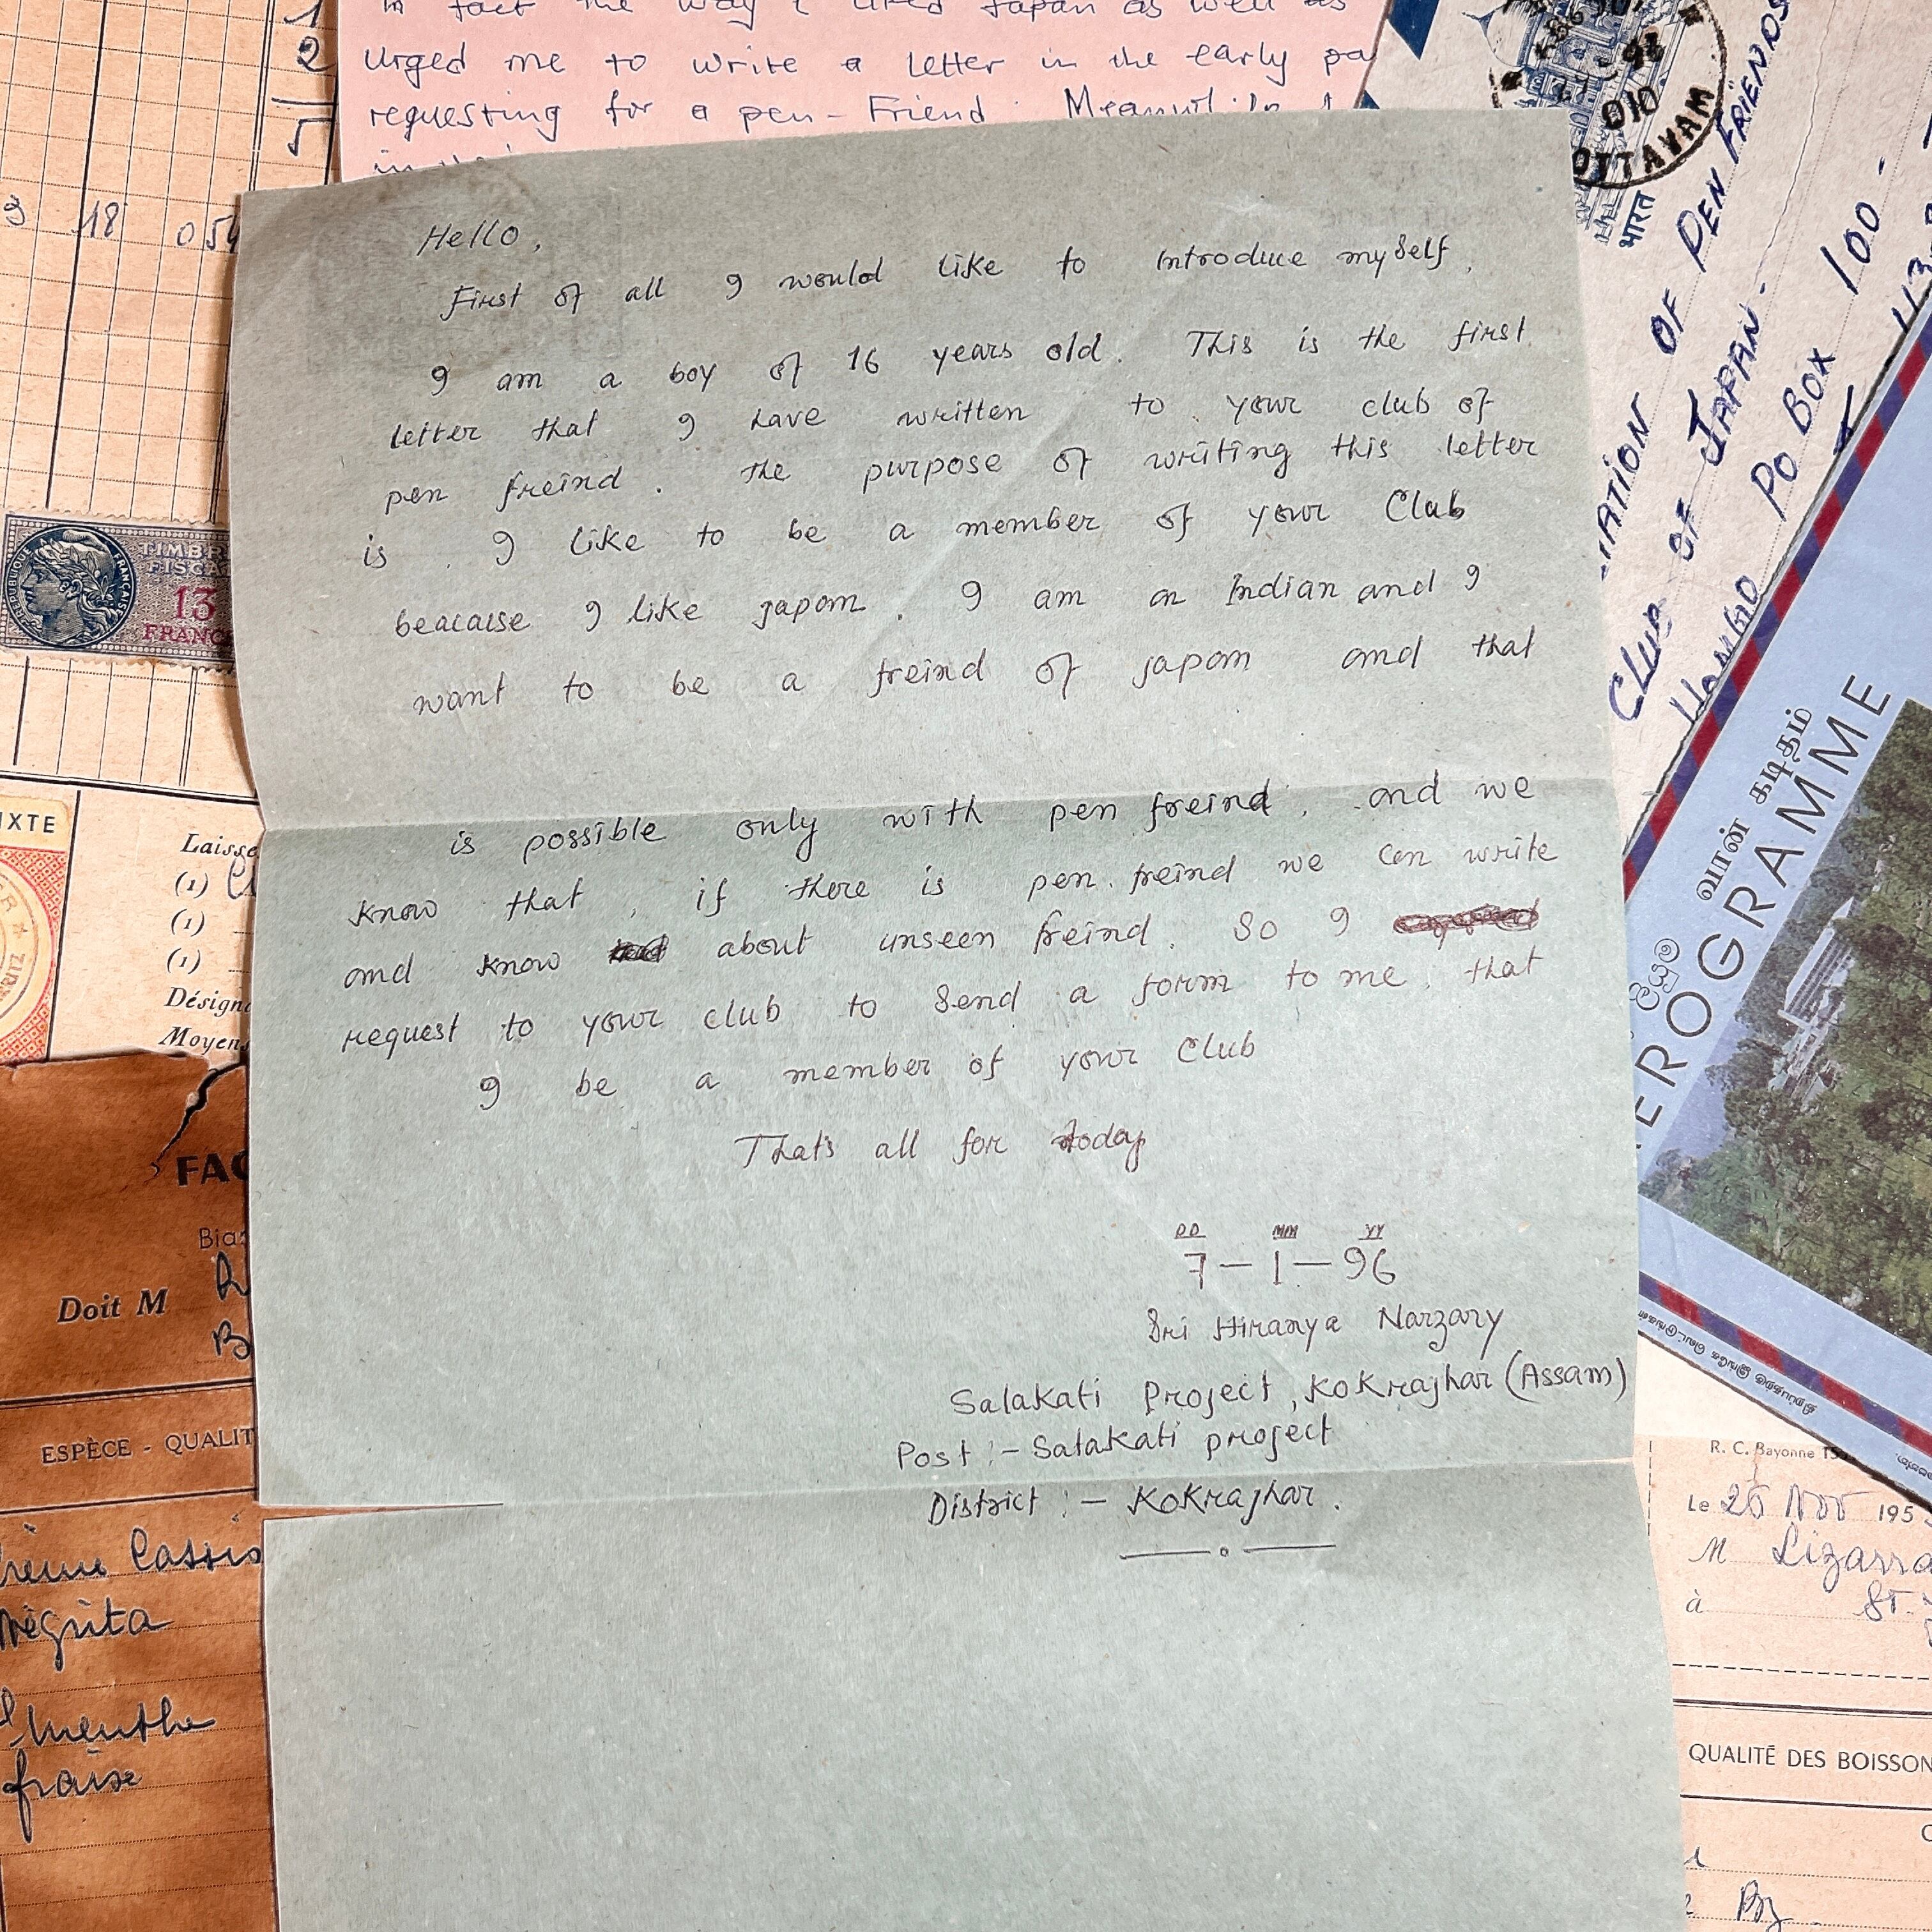 in fact the way I liked Japan as well as
Urged me to write a letter in the early pa
requesting for a pen-Friend.
1
2
5
18 054
Hello,
First of all I would like to introduce myself,
I am a boy of 16 years old. This is the first
letter that I have written to your club of
pen freind. The purpose of writing this letter
is, I like to be a member of your Club
beacause I like japan. I am an Indian and I
want to be a freind of japan and that
is possible only with pen freind, and we
know that, if there is pen freind we can write
and know about unseen freind. So I
request to your club to send a form to me, that
I be a member of your Club
That's all for today
DD MM YY
7 - 1 - 96
Sri Hiranya Narzary
Salakati Project, Kokrajhar (Assam)
Post :- Salakati project
District :- Kokrajhar.
OTTAVAM
010
भारत
RATION OF PEN FRIENDS
CLUB OF JAPAN -
PO BOX 100 -
வான் கடிதம்
EROGRAMME
REPUBLIQUE FRANÇAISE
TIMBR
FISCA
13
FRANC
IXTE
Laisse
(1)
(1)
(1)
Désign
Moyen
FAC
Doit M
ESPÈCE - QUALIT
Cassis
menthe
fraise
R. C. Bayonne
Le 26 Nov 195
M Lizarra
à St.
QUALITÉ DES BOISSON